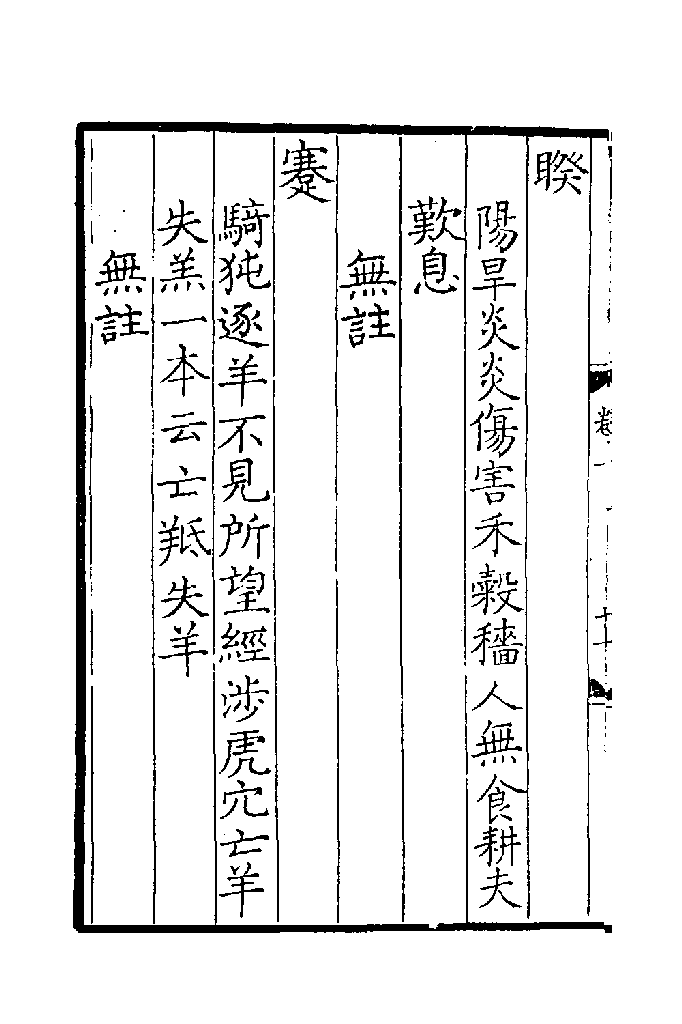 睽
陽旱炎炎傷害禾穀穡人無食耕夫
歎息
無註
蹇
騎㹠逐羊不見所望經涉虎穴亡羊
失羔一本云亡羝失羊
無註